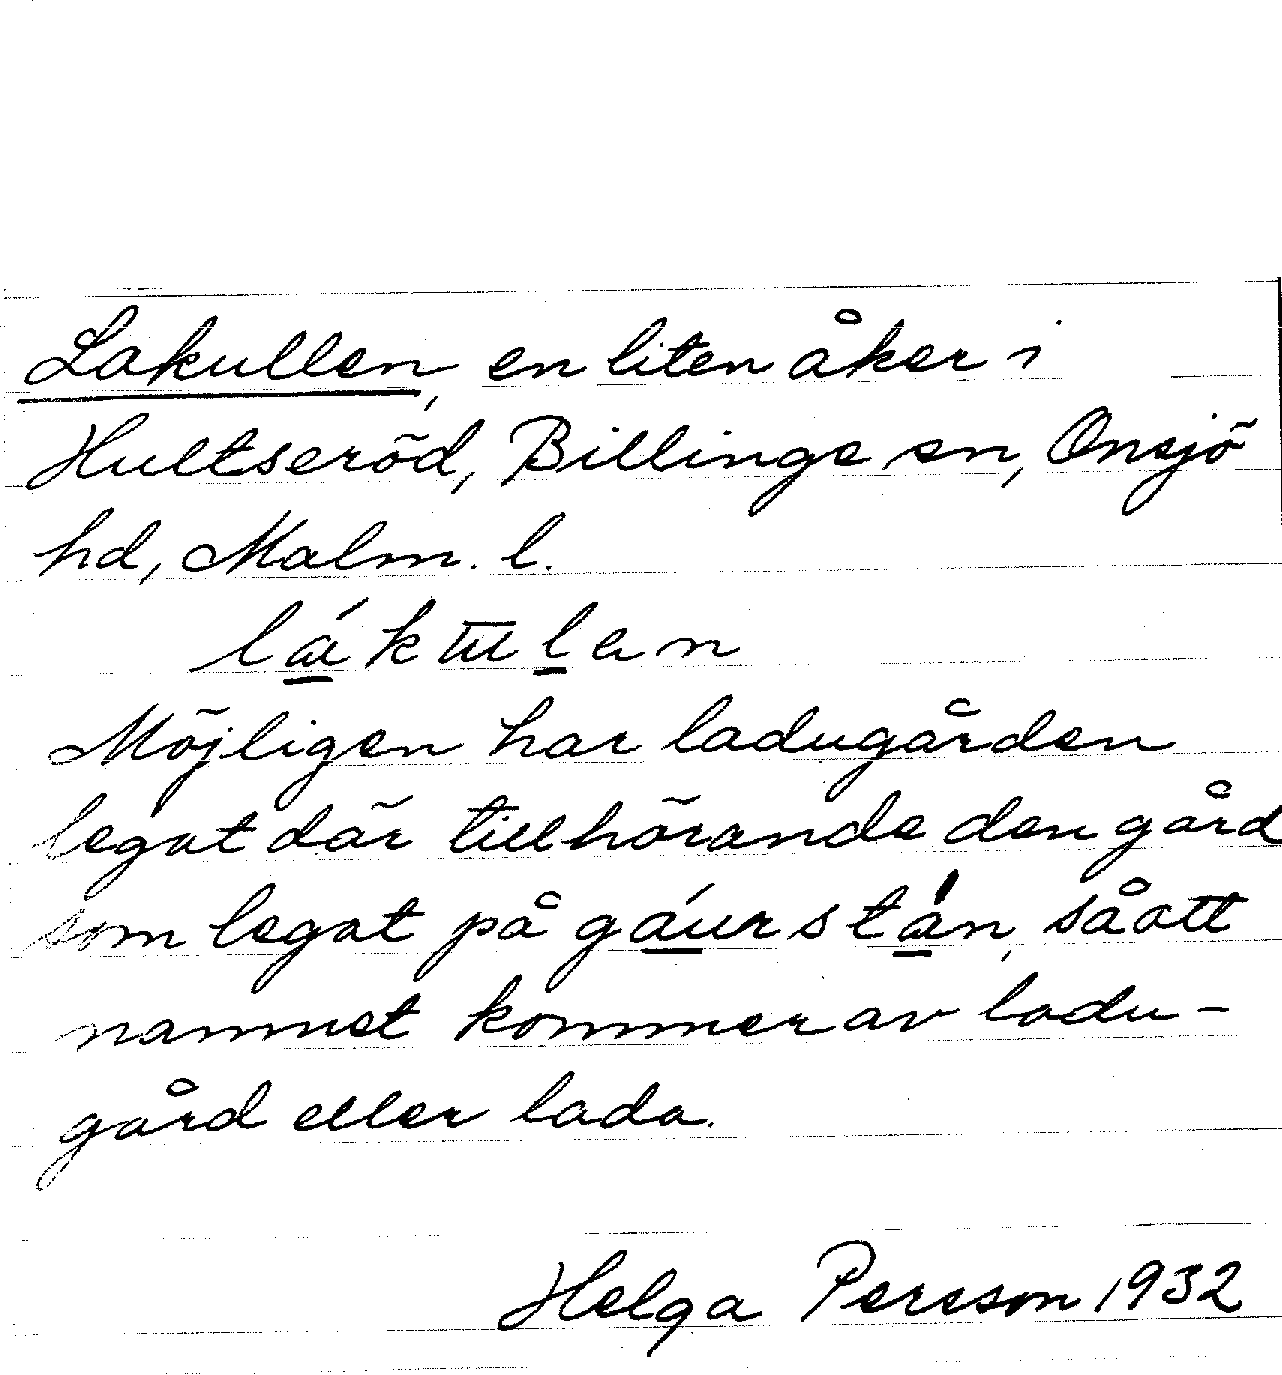 Lakullen, en liten åker i
Hultseröd, Billinge sn, Onsjö
hd, Malm. l.
Möjligen har ladugården
legat där tillhörande den gård
som legat på gáurstán, såatt
namnet kommer av ladu-
gård eller lada.
Helga Persson 1932